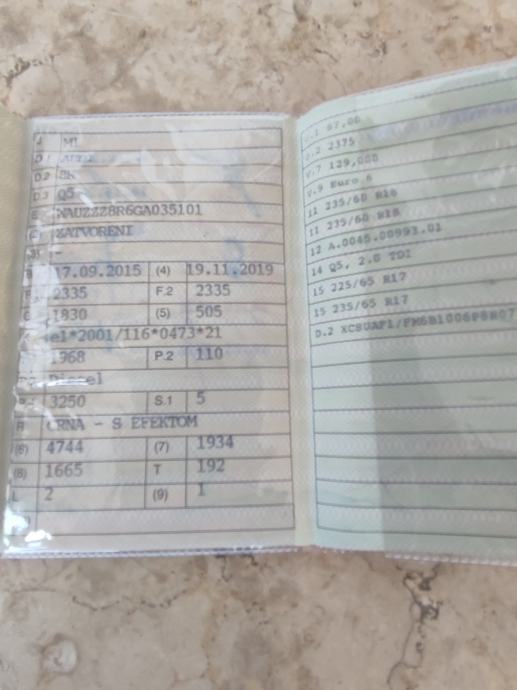 J M1
D.1 AUDI
D.2 8R
D.3 Q5
E WAUZZZ8R6GA035101
ZATVORENI
-
B 17.09.2015 (4) 19.11.2019
F. 2335 F.2 2335
G 1830 (5) 505
K e1*2001/116*0473*21
1968 P.2 110
Diesel
P. 3250 S.1 5
R CRNA - S EFEKTOM
(6) 4744 (7) 1934
(8) 1665 T 192
L 2 (9) 1
.1 87,00
.2 2375
V.7 129,000
V.9 Euro 6
11 235/60 R18
11 235/60 R18
12 A.0045.00993.01
14 Q5, 2.0 TDI
15 225/65 R17
15 235/65 R17
D.2